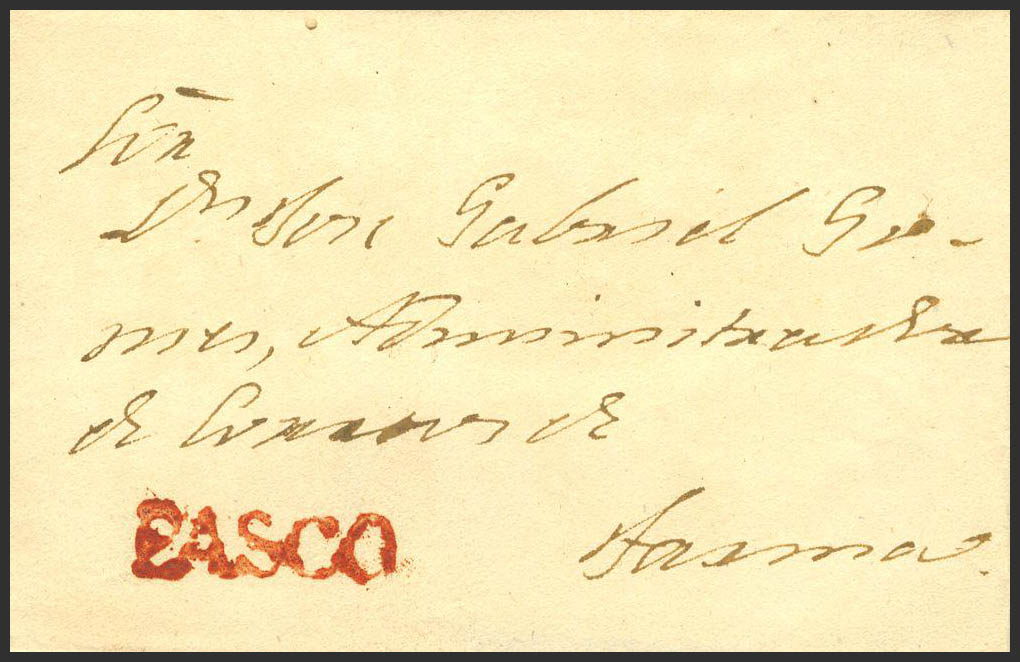 Sor
Dn. Jose Gabriel Go-
mes, Administrador
de Correos de
Tarma.
PASCO